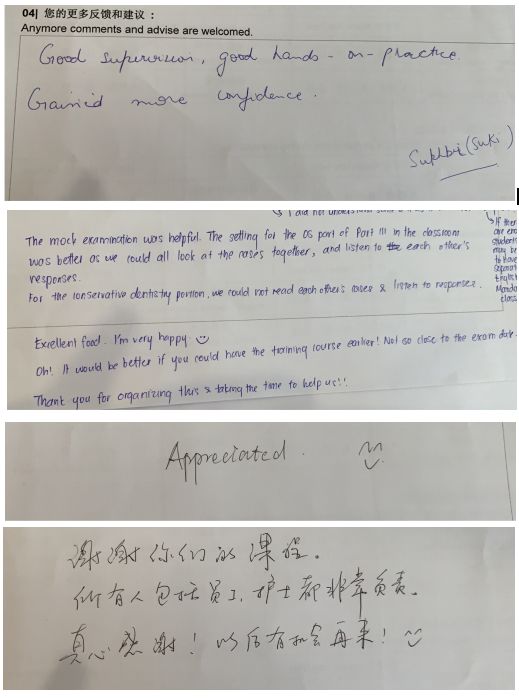 04| 您的更多反馈和建议：
Anymore comments and advise are welcomed.
Good supervision, good hands-on-practice.
Gainied more confidence.
(Suki)
I did not understand
The mock examination was helpful. The setting for the OS part of Part III in the classroom
was better as we could all look at the cases together, and listen to each other's
responses.
For the conservative dentistry portion, we could not read each other's cases & listen to responses.
If ther
are eno
students
may be
to have
separat
English
Manda
class
Excellent food. I'm very happy
Oh! It would be better if you could have the training course earlier! Not so close to the exam date.
Thank you for organizing this & taking the time to help us!!
Appreciated.
谢谢你们的课程。
所有人包括员工,护士都非常负责。
真心感谢！以后有机会再来！